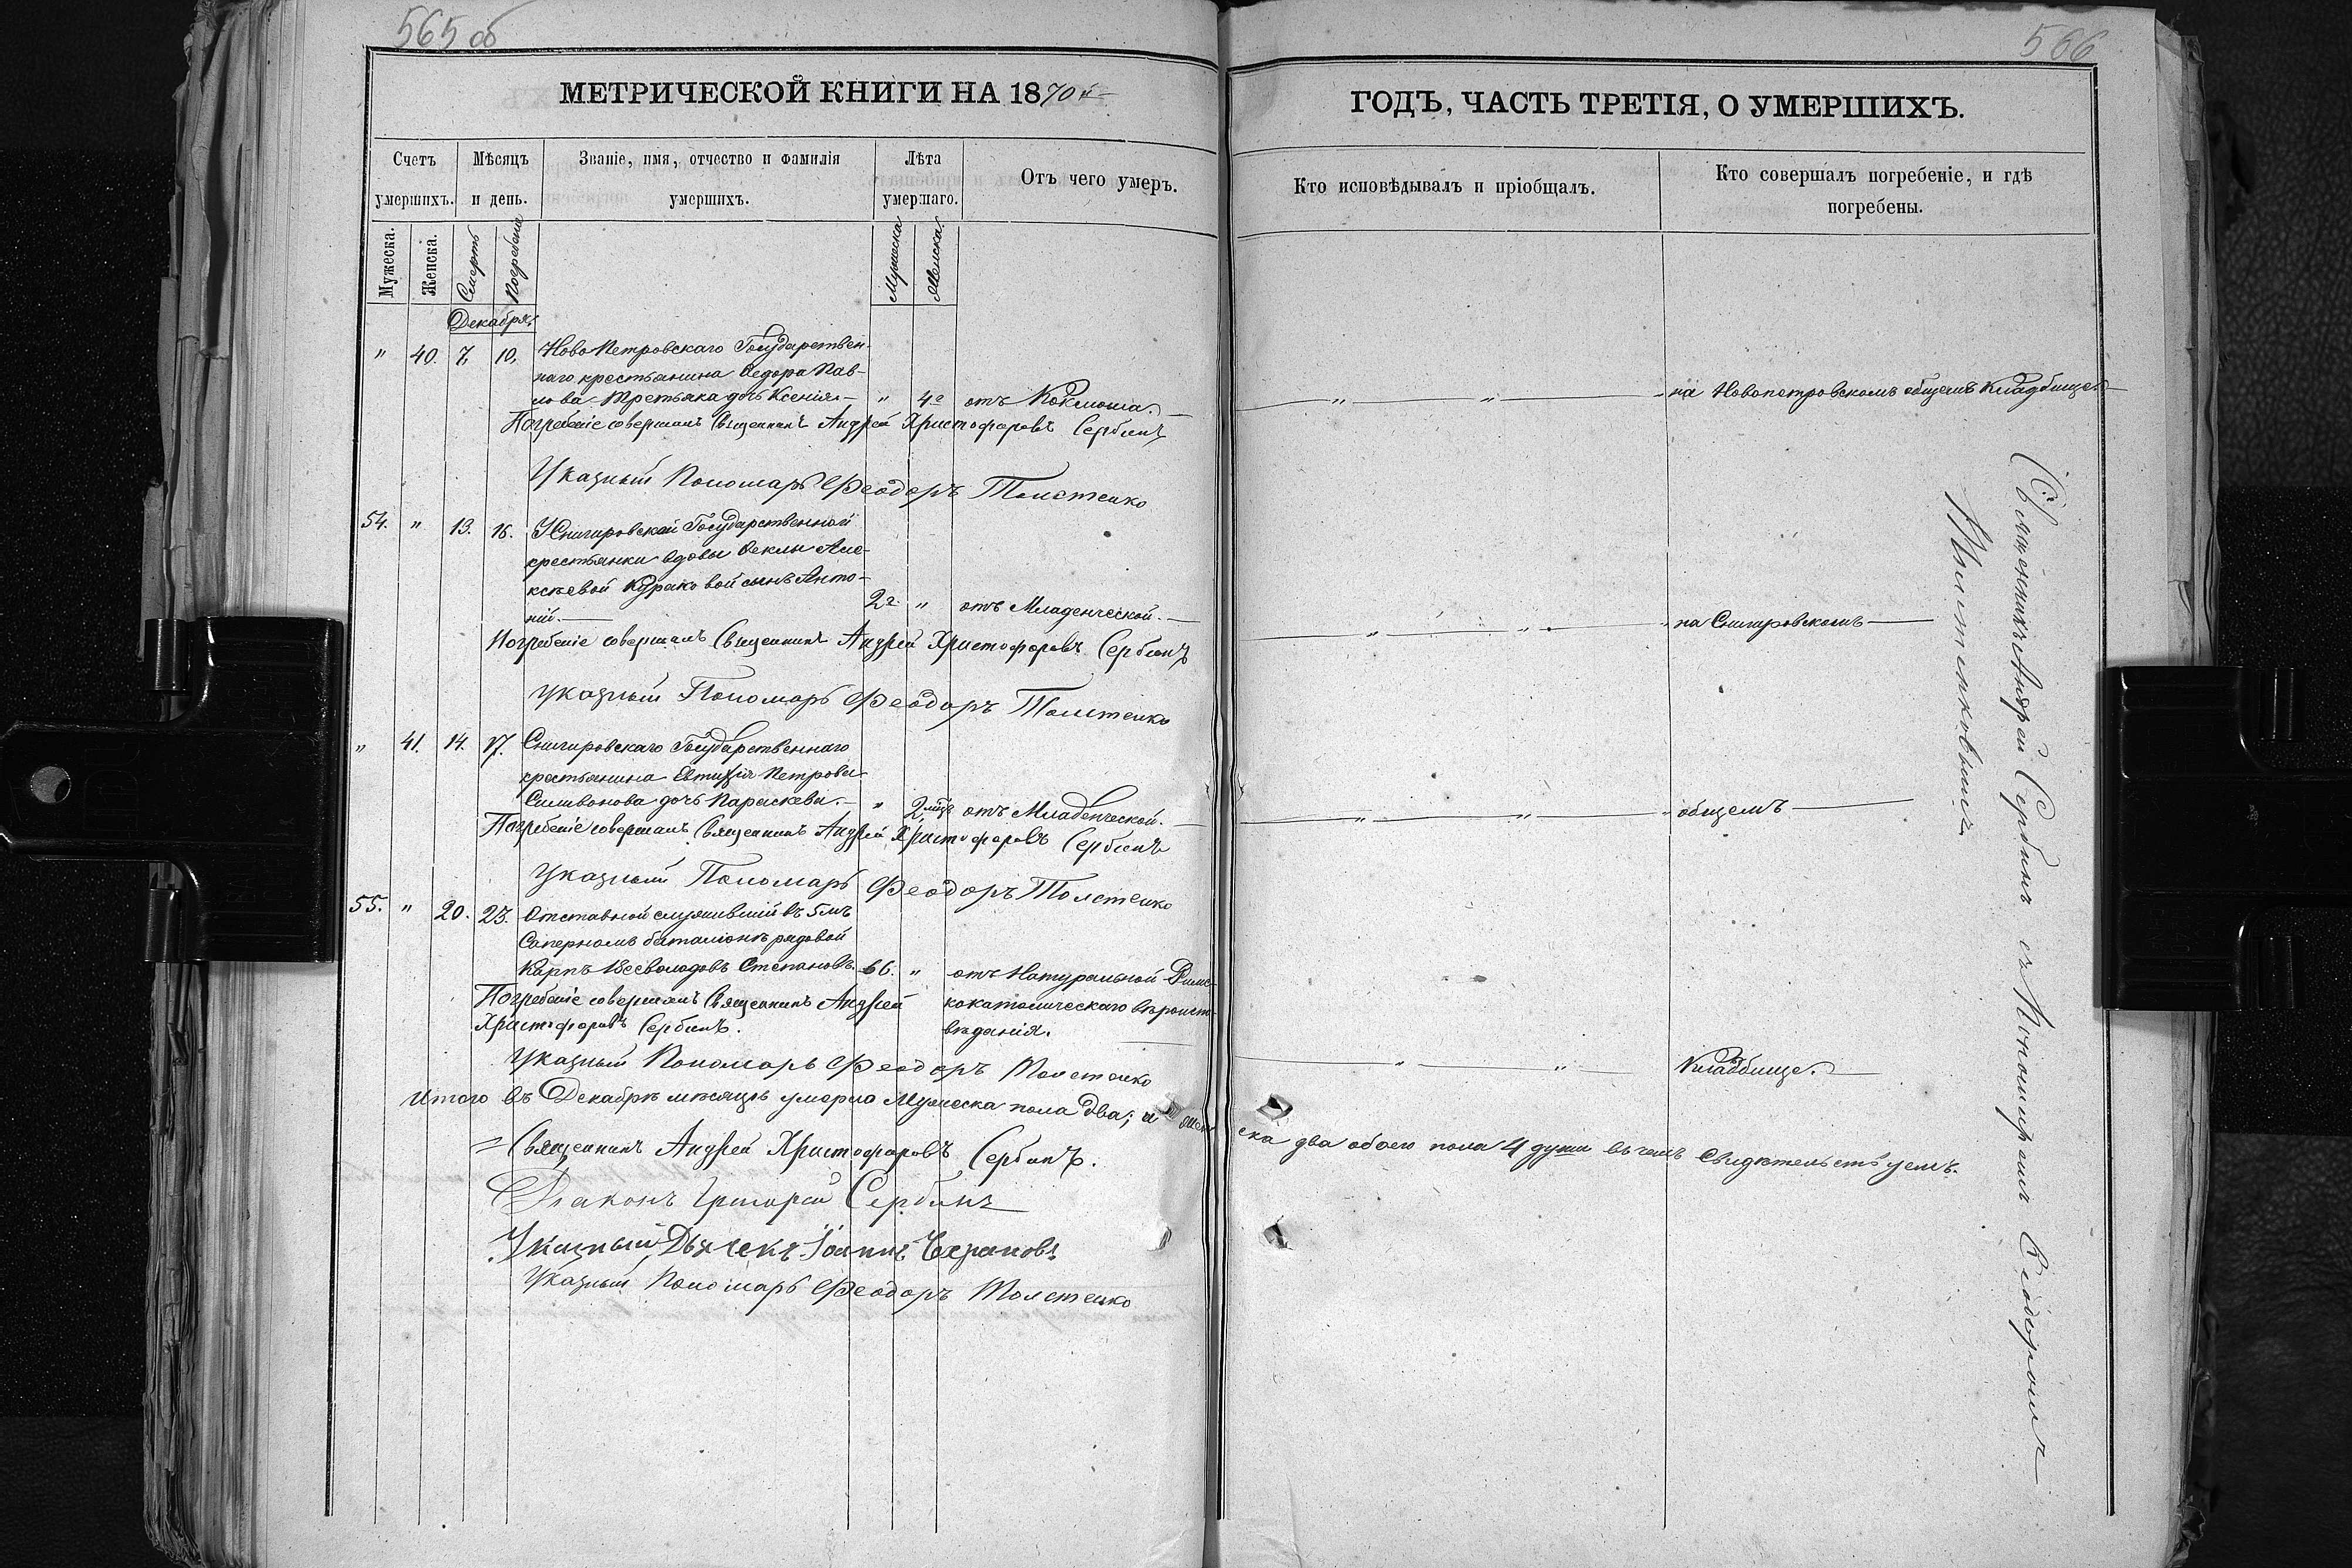 565 об
566
МЕТРИЧЕСКОЙ КНИГИ НА 1870й
ГОДЪ, ЧАСТЬ ТРЕТІЯ, О УМЕРШИХЪ.
Счетъ умершихъ.
Мѣсяцъ и день.
Званіе, имя, отчество и фамилія умершихъ.
Лѣта умершаго.
Отъ чего умеръ.
Кто исповѣдывалъ и пріобщалъ.
Кто совершалъ погребеніе, и гдѣ погребены.
Мужеска.
Женска.
Смерть
Погребенія
Мужеска
Женска
Декабря
" 40. 7. 10. Ново Петровскаго Государствен-
наго крестьянина Ѳедора Пав-
лова Третьяка дочь Ксенія — " 4г отъ Коклюша. — " — " — на Новопетровскомъ общемъ Кладбище. —
Погребеніе совершалъ Священникъ Андрей Христофоровъ Сербинъ
Указный Пономарь Феодоръ Толстенко
54. " 13. 16. Снигировской Государственной
крестьянки вдовы Ѳеклы Але-
ксѣевой Кураковой сынъ Анто-
ній. — 2г " отъ Младенческой. — " — " — на Снигировскомъ —
Погребеніе совершалъ Священникъ Андрей Христофоровъ Сербинъ
Указный Пономарь Феодоръ Толстенко
" 41. 14. 17. Снигировскаго Государственнаго
крестьянина Евтихія Петрова
Силивонова дочь Параскева. — " 2 мѣц отъ Младенческой. — " — " — общемъ —
Погребеніе совершалъ Священникъ Андрей Христофоровъ Сербинъ
Указный Пономарь Феодоръ Толстенко
55. " 20. 23. Отставной служившій въ 5мъ
Саперномъ баталіонѣ рядовой
Карпъ Всеволодовъ Степановъ. 66. " отъ Натуральной Римс-
кокатолическаго вѣроиспо-
вѣданія. — " — " — Кладбище. —
Погребеніе совершалъ Священникъ Андрей
Христофоровъ Сербинъ.
Указный Пономарь Феодоръ Толстенко
Итого въ Декабрѣ мѣсяцѣ умерло Мужеска пола два; и женска два обоего пола 4 души въ чемъ Свидѣтельствуемъ.
Священникъ Андрей Христофоровъ Сербинъ.
Діаконъ Григорій Сербинъ
Указный Дьячекъ Іоаннъ
Указный Пономарь Феодоръ Толстенко
Священникъ Андрей Сербинъ съ Пономаремъ Ѳеодоромъ
Толстенковымъ